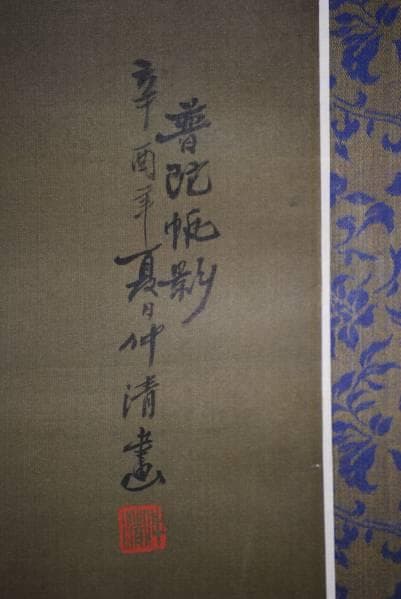 普陀帆影
辛酉年夏日仲清画